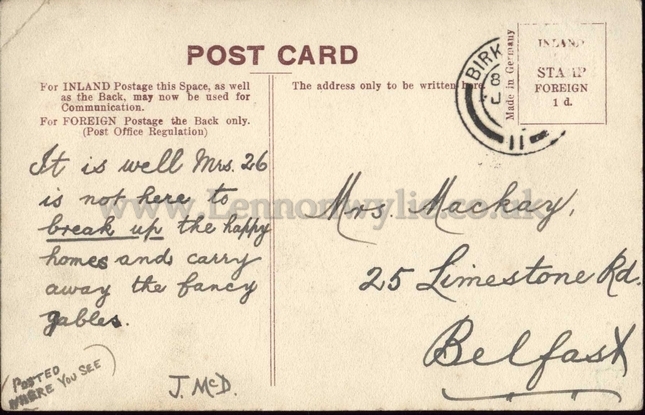 POST CARD
For INLAND Postage this Space, as well
as the Back, may now be used for
Communication.
For FOREIGN Postage the Back only.
(Post Office Regulation)
The address only to be written here.
Made in Germany
INLAND
STAMP
FOREIGN
1 d.
BIRK
8
11
It is well Mrs. 26
is not here to
break up the happy
homes and carry
away the fancy
gables.
(POSTED
WHERE YOU SEE)
J. McD.
Mrs. Mackay,
25 Limestone Rd.
Belfast
www.Lennonwylie.co.uk